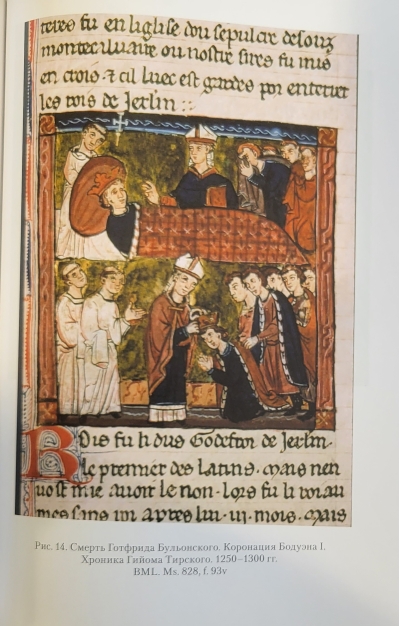 teres fu en liglise dou sepulcre desouz
monte caluaire, ou nostre sires fu mis
en crois. ⁊ cil luec est gardes por enterrer
les rois de Jerlm ::
Rois fu li dus Godefroi de Jerlm.
le premier des latins. mais nen
uost mie auoir le non. lors fu li roiau
mes sans roi apres lui .iii. mois. mais
Рис. 14. Смерть Готфрида Бульонского. Коронация Бодуэна I.
Хроника Гийома Тирского. 1250–1300 гг.
BML. Ms. 828, f. 93v